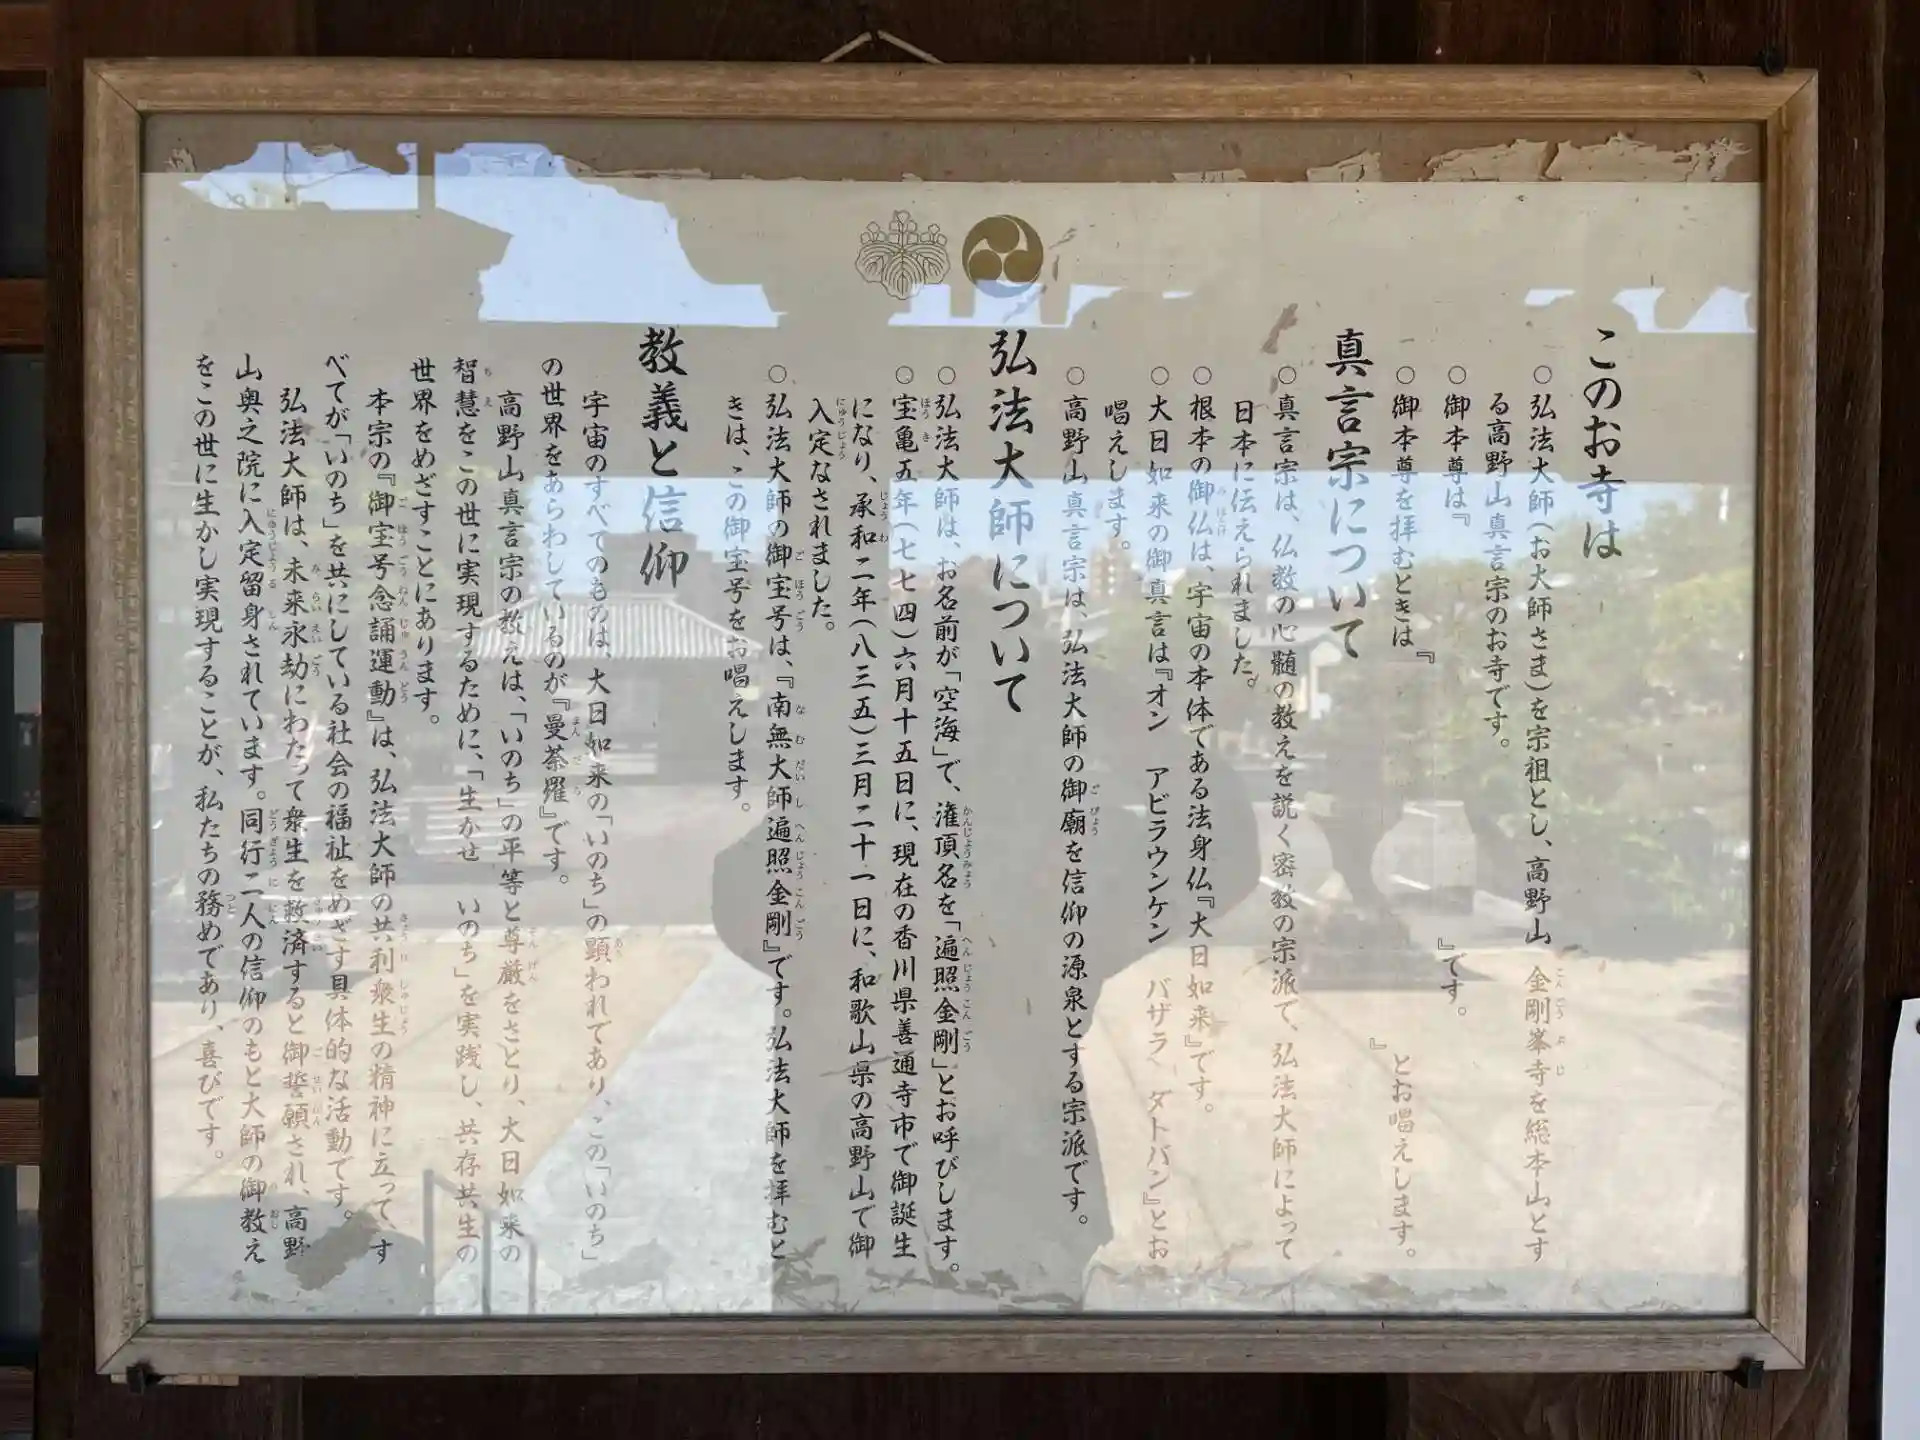 このお寺は
○弘法大師(お大師さま)を宗祖とし、高野山 金剛峯寺を総本山とす
る高野山真言宗のお寺です。
○御本尊は『 』です。
○御本尊を拝むときは『 』とお唱えします。
真言宗について
○真言宗は、仏教の心髄の教えを説く密教の宗派で、弘法大師によって
日本に伝えられました。
○根本の御仏は、宇宙の本体である法身仏『大日如来』です。
○大日如来の御真言は『オン アビラウンケン バザラ ダトバン』とお
唱えします。
○高野山真言宗は、弘法大師の御廟を信仰の源泉とする宗派です。
弘法大師について
○弘法大師は、お名前が「空海」で、潅頂名を「遍照金剛」とお呼びします。
○宝亀五年(七七四)六月十五日に、現在の香川県善通寺市で御誕生
になり、承和二年(八三五)三月二十一日に、和歌山県の高野山で御
入定なされました。
○弘法大師の御宝号は、『南無大師遍照金剛』です。弘法大師を拝むと
きは、この御宝号をお唱えします。
教義と信仰
宇宙のすべてのものは、大日如来の「いのち」の顕われであり、この「いのち」
の世界をあらわしているのが『曼荼羅』です。
高野山真言宗の教えは、「いのち」の平等と尊厳をさとり、大日如来の
智慧をこの世に実現するために、「生かせ いのち」を実践し、共存共生の
世界をめざすことにあります。
本宗の『御宝号念誦運動』は、弘法大師の共利衆生の精神に立って、す
べてが「いのち」を共にしている社会の福祉をめざす具体的な活動です。
弘法大師は、未来永劫にわたって衆生を救済すると御誓願され、高野
山奥之院に入定留身されています。同行二人の信仰のもと大師の御教え
をこの世に生かし実現することが、私たちの務めであり、喜びです。